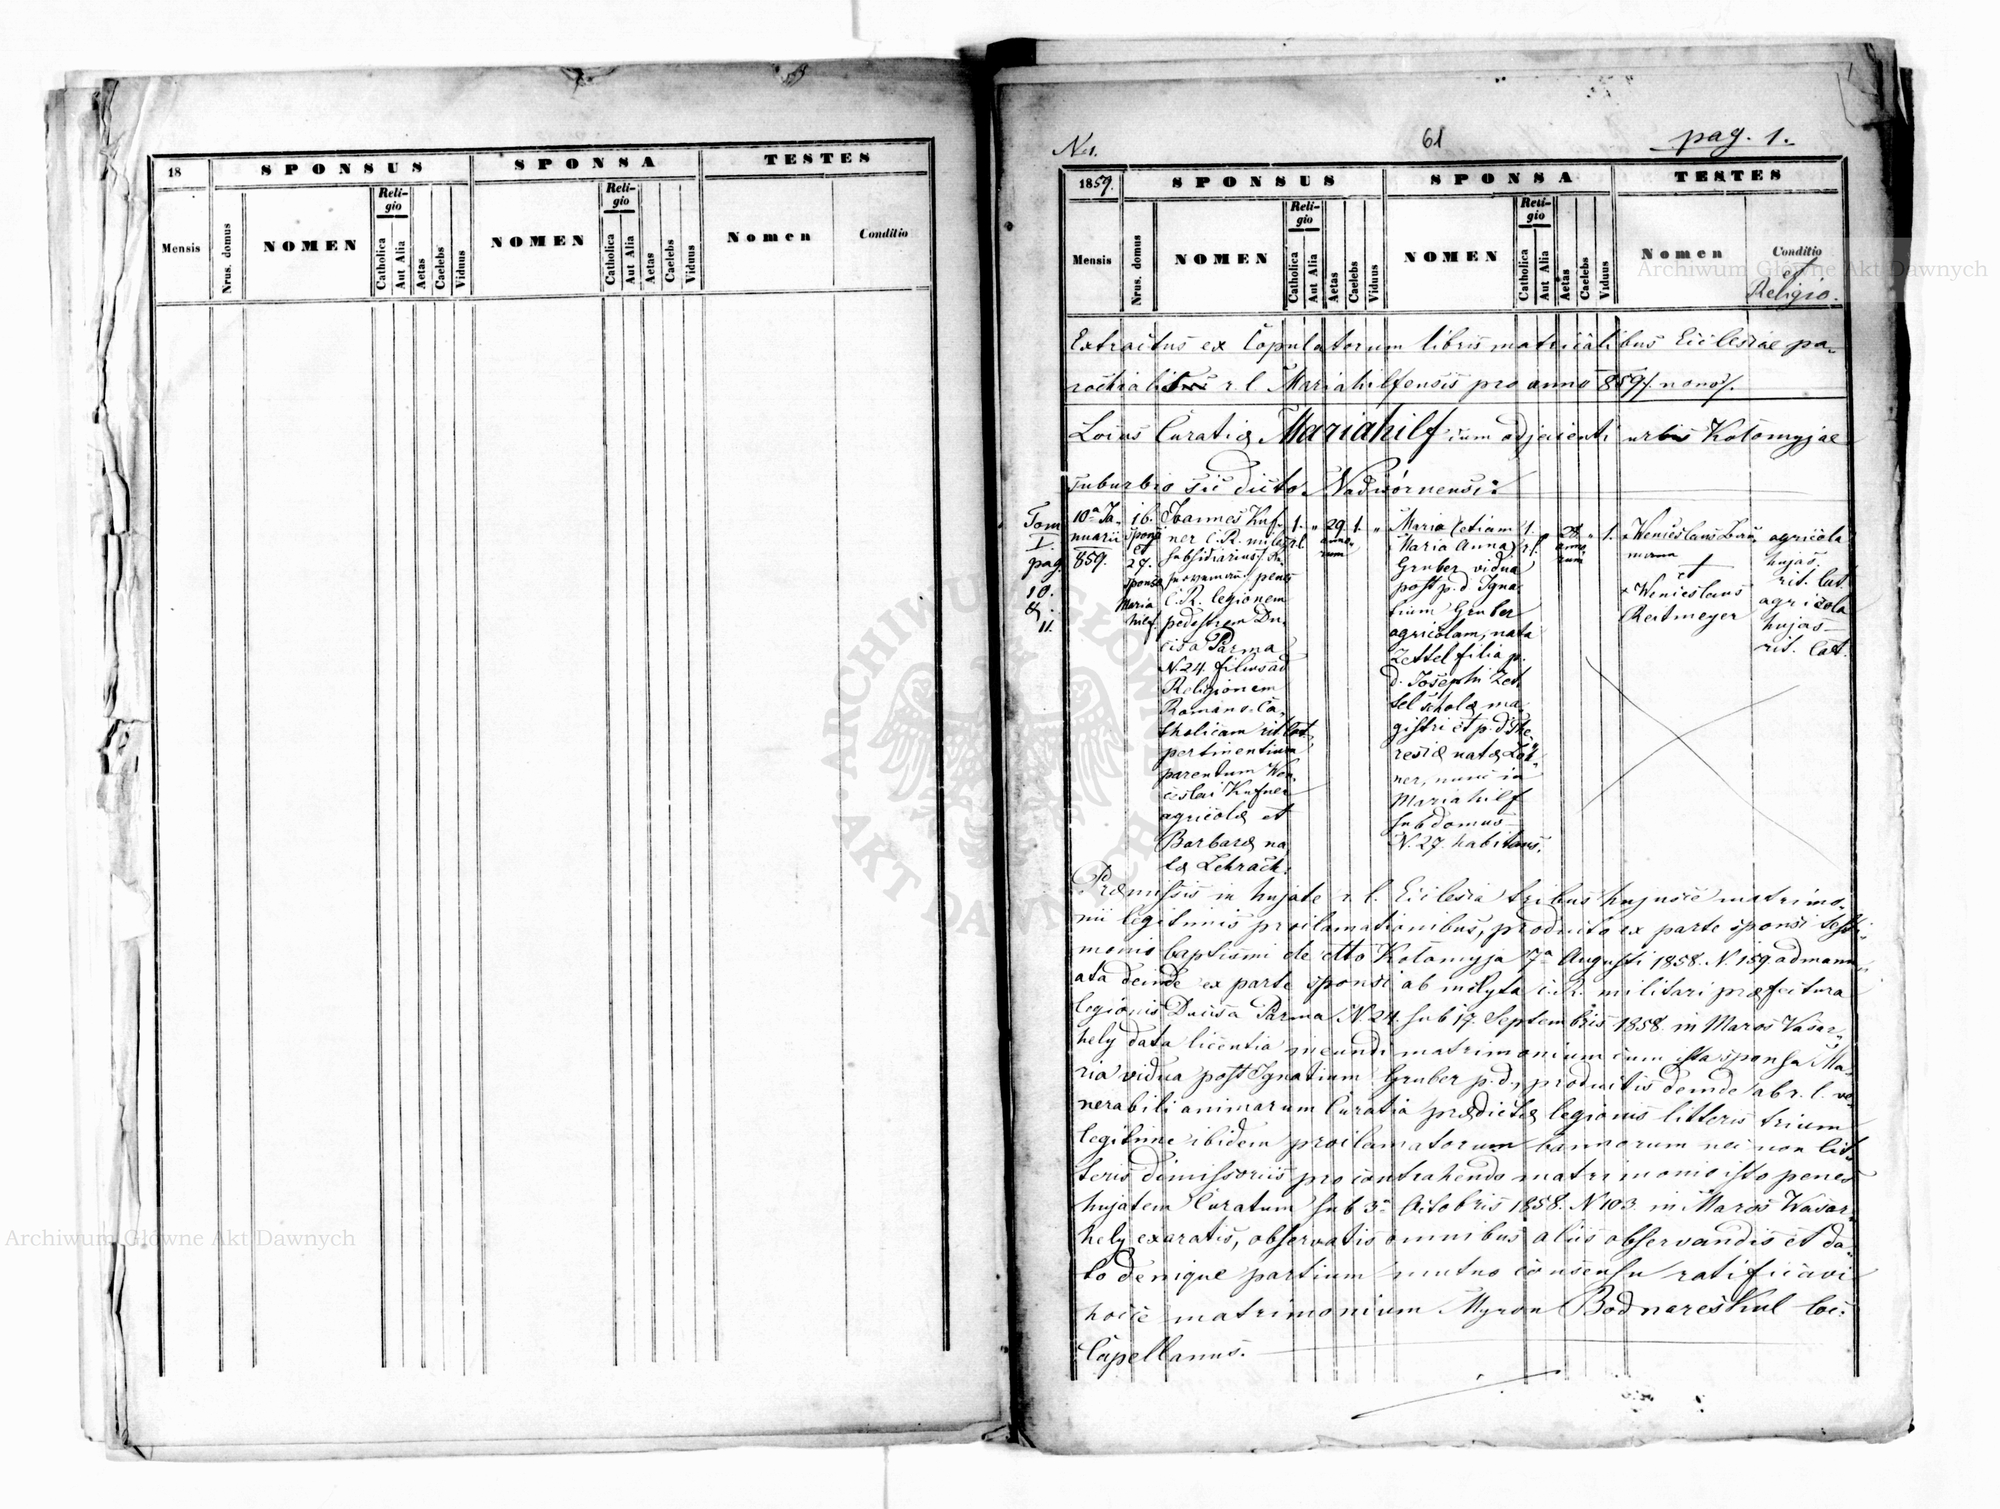 18
SPONSUS
SPONSA
TESTES
Mensis
Nrus. domus
NOMEN
Religio
Catholica
Aut Alia
Aetas
Caelebs
Viduus
NOMEN
Religio
Catholica
Aut Alia
Aetas
Caelebs
Viduus
Nomen
Conditio
61
pag. 1.
1859.
SPONSUS
SPONSA
TESTES
Mensis
Nrus. domus
NOMEN
Religio
Catholica
Aut Alia
Aetas
Caelebs
Viduus
NOMEN
Religio
Catholica
Aut Alia
Aetas
Caelebs
Viduus
Nomen
Conditio
et
Religio.
Extractus ex Copulatorum libris matricalibus Ecclesiae pa-
r. l. Mariahilfensis pro anno 859/. nono/.
Locus Curatiae Mariahilf cum adjacenti urbis Kołomyjae
suburbio sic dicto Nadwórnensi:
Tom
I.
pag.
10.
&
11.
10a Ja-
nuarii
859.
16.
sponsi
et
27.
sponsae
Maria
hilf.
Joannes Kuf-
ner C.R. miles
subsidiarius
penes
C.R. legionem
pedestrem Du-
cis a Parma
N. 24. filius ad
Religionem
Romano Ca-
tholicam rit. lat.
pertinentium
parentum Wen-
ceslai Kufner
agricolae et
Barbarae na-
tae Lehrach.
1.
r.l.
"
29.
anno-
rum
1.
"
Maria (etiam
Maria Anna)
Gruber vidua
post p.d. Igna-
tium Gruber
agricolam, nata
Zettel filia p.
d. Josephi Zet-
tel scholae ma-
gistri et p. d. The-
resiae natae
ner, nunc in
Mariahilf
sub domus
N. 27. habitans.
1.
r.l.
"
28.
anno-
rum
"
1.
Wenceslaus
agricola
hujas.
rit. lat.
+
Wenceslaus
Reitmeyer
agricola
hujas
rit. lat.
Praemissis in hujate r. l. Ecclesia tribus hujusce matrimo-
nii legitimis proclamationibus, producto ex parte sponsi testi-
monio baptismi de dtto Kołomyja 7a Augusti 1858. N. 159.
deinde ex parte sponsi ab inclyta C.R. militari praefectura
legionis Ducis a Parma N 24. sub 17. Septembris 1858. in Maros Vasar-
hely data licentia ineundi matrimonium cum ista sponsa Ma-
ria vidua post Ignatium Gruber p.d., productis deinde ab r. l. ve-
nerabili animarum Curatia praedictae legionis litteris trium
legitime ibidem proclamatorum bannorum nec non lit-
teris dimissoriis pro contrahendo matrimonio isto penes
hujatem Curatum sub 3a Octobris 1858. N 103. in Maros Wasar-
hely exaratis, observatis omnibus aliis observandis et da-
to denique partium mutuo consensu ratificavi
hocce matrimonium Myron Bodnareskul loc:
Capellanus.
Archiwum Główne Akt Dawnych
Archiwum Główne Akt Dawnych
ARCHIWUM GŁÓWNE AKT DAWNYCH